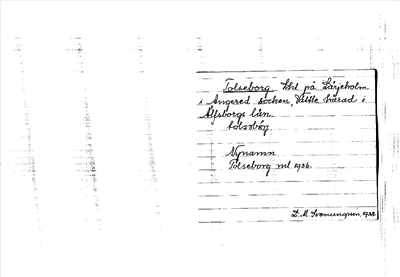 Tolseborg lht på Lärjeholm
i Angered socken, Vättle härad i
Älfsborgs län.
tolsəbǫrj
Nynamn.
Tolseborg ml 1936.
D. A. Svenungson, 1938